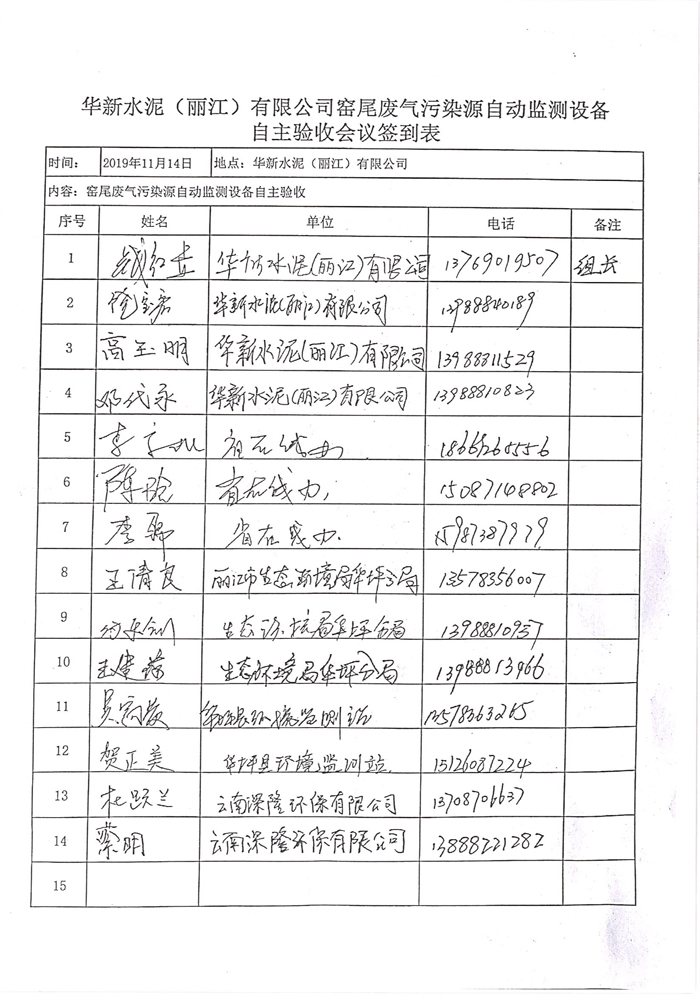 华新水泥（丽江）有限公司窑尾废气污染源自动监测设备
自主验收会议签到表
时间： 2019年11月14日 地点：华新水泥（丽江）有限公司
内容：窑尾废气污染源自动监测设备自主验收
序号 姓名 单位 电话 备注
1 华新水泥(丽江)有限公司 13769019507 组长
2 华新水泥(丽江)有限公司 13988840189
3 高玉明 华新水泥(丽江)有限公司 13988811529
4 邓代永 华新水泥(丽江)有限公司 13988810823
5 李
6 陈玲 省在线办 15087148802
7 李 省在线办 15987387979
8 王清良 丽江市生态环境局华坪分局 13578356007
9 生态环境局华坪分局 13988810937
10 生态环境局华坪分局 13988813966
11 环境监测站 13578363265
12 贺正美 华坪县环境监测站 15126087224
13 杜跃兰 云南深隆环保有限公司 13708706637
14 蔡明 云南深隆环保有限公司 13888221282
15